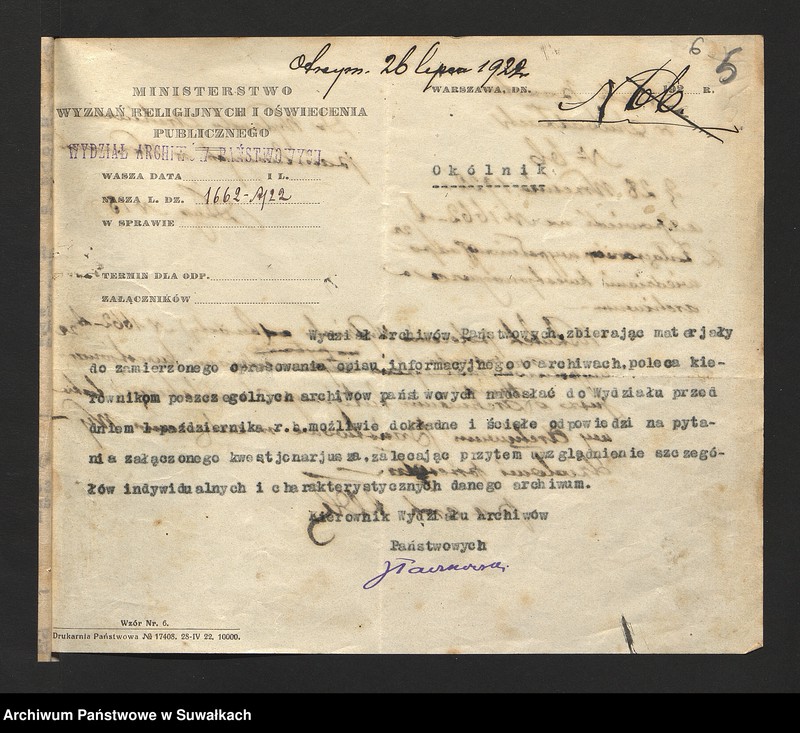 6 5
Otrzym. 26 lipca 1922
WARSZAWA, DN. 192 R.
N 66.
MINISTERSTWO
WYZNAŃ RELIGIJNYCH I OŚWIECENIA
PUBLICZNEGO
WYDZIAŁ ARCHIWÓW PAŃSTWOWYCH
WASZA DATA I L.
NASZA L. DZ. 1662-A/22
W SPRAWIE
TERMIN DLA ODP.
ZAŁĄCZNIKÓW
Okólnik
Wydział Archiwów Państwowych, zbierając materjały
do zamierzonego opracowania opisu informacyjnego o archiwach, poleca kie-
rownikom poszczególnych archiwów państwowych nadesłać do Wydziału przed
dniem 1 października r.b. możliwie dokładne i ścisłe odpowiedzi na pyta-
nia załączonego kwestjonarjusza, zalecając przytem uwzględnienie szczegó-
łów indywidualnych i charakterystycznych danego archiwum.
Kierownik Wydziału Archiwów
Państwowych
Wzór Nr. 6.
Drukarnia Państwowa № 17408. 28-IV 22. 10000.
Archiwum Państwowe w Suwałkach